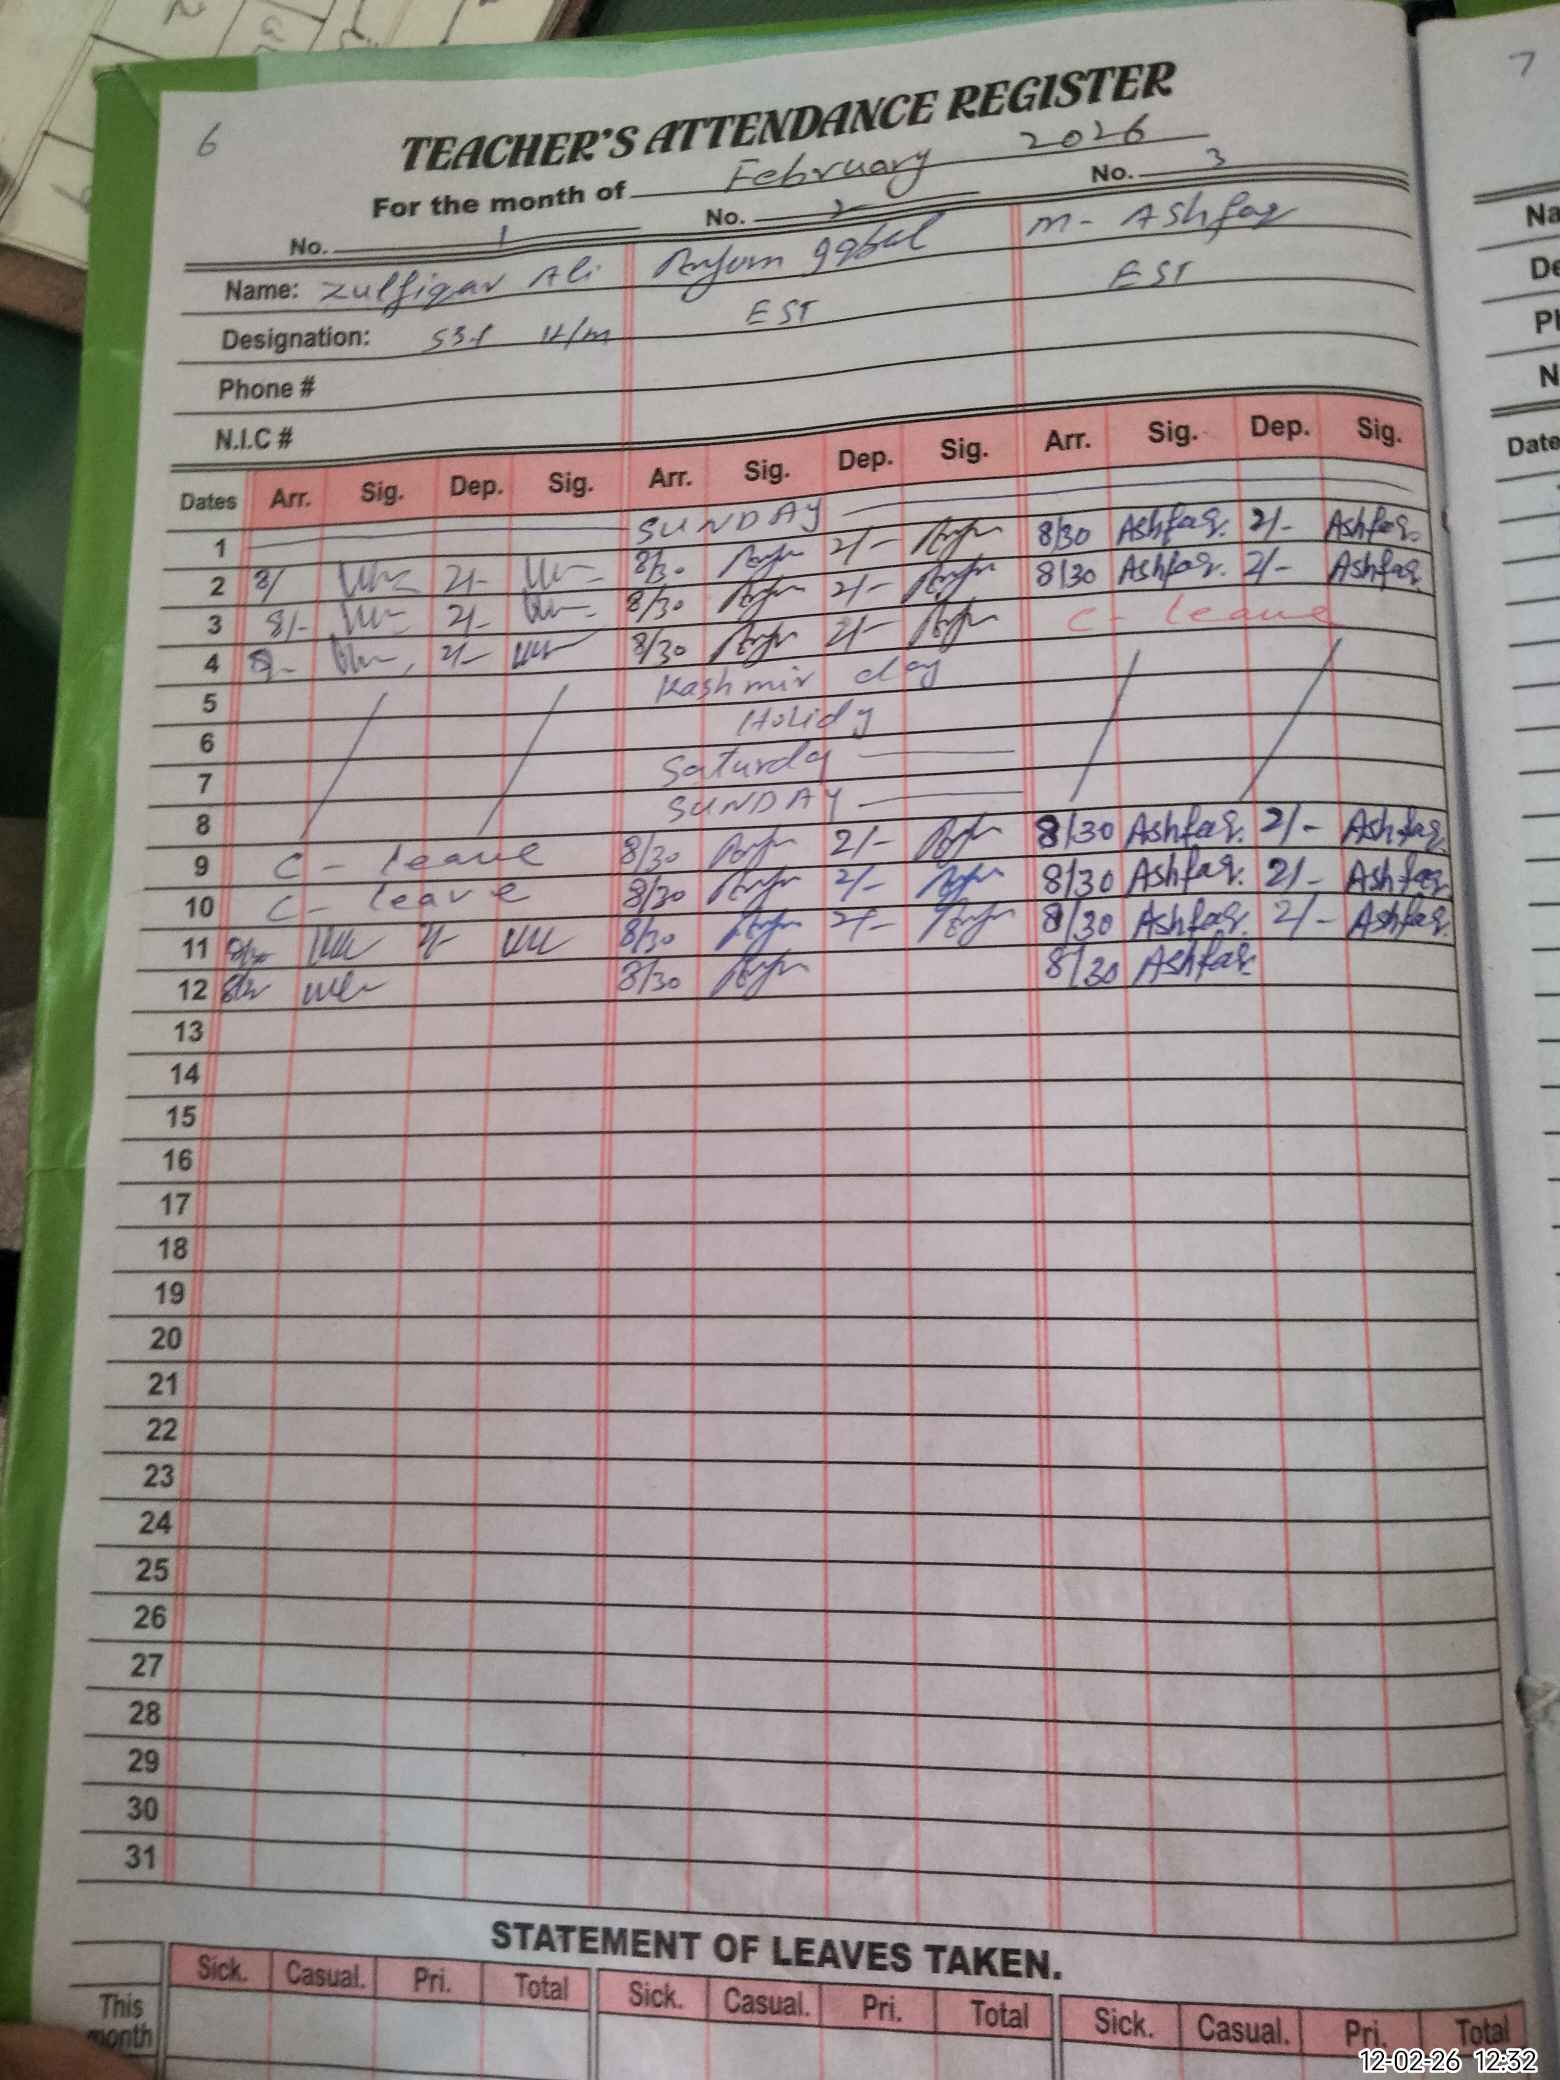 6
7
TEACHER'S ATTENDANCE REGISTER
For the month of February 2026
No. 1 No. 2 No. 3
Name: Zulfiqar Ali Anjum Iqbal M- Ashfaq
Designation: SST H/M EST EST
Phone #
N.I.C #
Dates Arr. Sig. Dep. Sig. Arr. Sig. Dep. Sig. Arr. Sig. Dep. Sig.
1 SUNDAY
2 8/ 2/- 8/30 2/- 8/30 Ashfaq. 2/- Ashfaq.
3 8/- 2/- 8/30 2/- 8/30 Ashfaq. 2/- Ashfaq.
4 8/- 2/- 8/30 2/- C- leave
5 Kashmir day
6 Holidy
7 Saturday
8 SUNDAY
9 C- leave 8/30 2/- 8/30 Ashfaq. 2/- Ashfaq.
10 C- leave 8/30 2/- 8/30 Ashfaq. 2/- Ashfaq.
11 8/30 2/- 8/30 2/- 8/30 Ashfaq. 2/- Ashfaq.
12 8/30 8/30 Ashfaq.
13
14
15
16
17
18
19
20
21
22
23
24
25
26
27
28
29
30
31
STATEMENT OF LEAVES TAKEN.
Sick. Casual. Pri. Total Sick. Casual. Pri. Total Sick. Casual. Pri. Total
This
month
Date
12-02-26 12:32